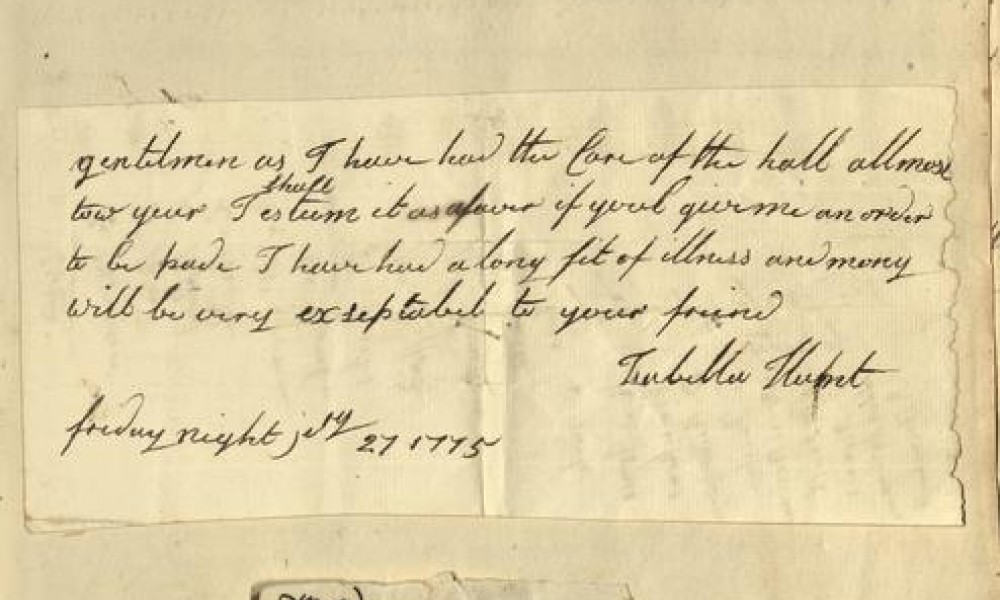 gentelmen as I have had the Care of the hall allmost
tow year I shall esteem it as a faver if youl give me an order
to be pade I have had a long fit of illness and mony
will be very exseptabel to your friend
Isabella
friday night jary 27 1775